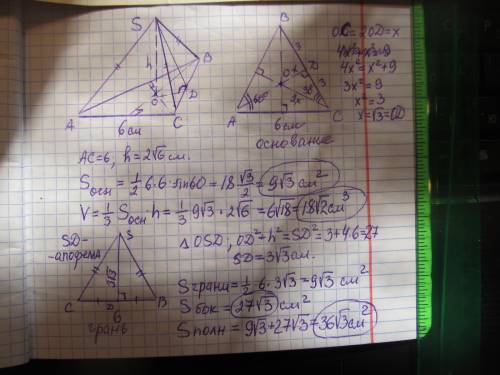 S
B
h
O
D
A
C
6 см
B
3
D
3
O
60°
2x
A
C
6 см
основание
OC=2OD=x
4x²=x²+9
4x²=x²+9
3x²=9
x²=3
x=√3=OD
AC=6, h=2√6 см.
Sосн = 1/2 6·6·sin60=18 √3/2=9√3 см²
V=1/3 Sосн h=1/3 9√3·2√6=6√18=18√2 см³
SD-
-апофема
S
3√3
C
D
B
6
грань
△OSD, OD²+h²=SD²=3+4·6=27
SD=3√3 см.
Sграни=1/2·6·3√3=9√3 см²
Sбок=27√3 см²
Sполн=9√3+27√3=36√3 см²